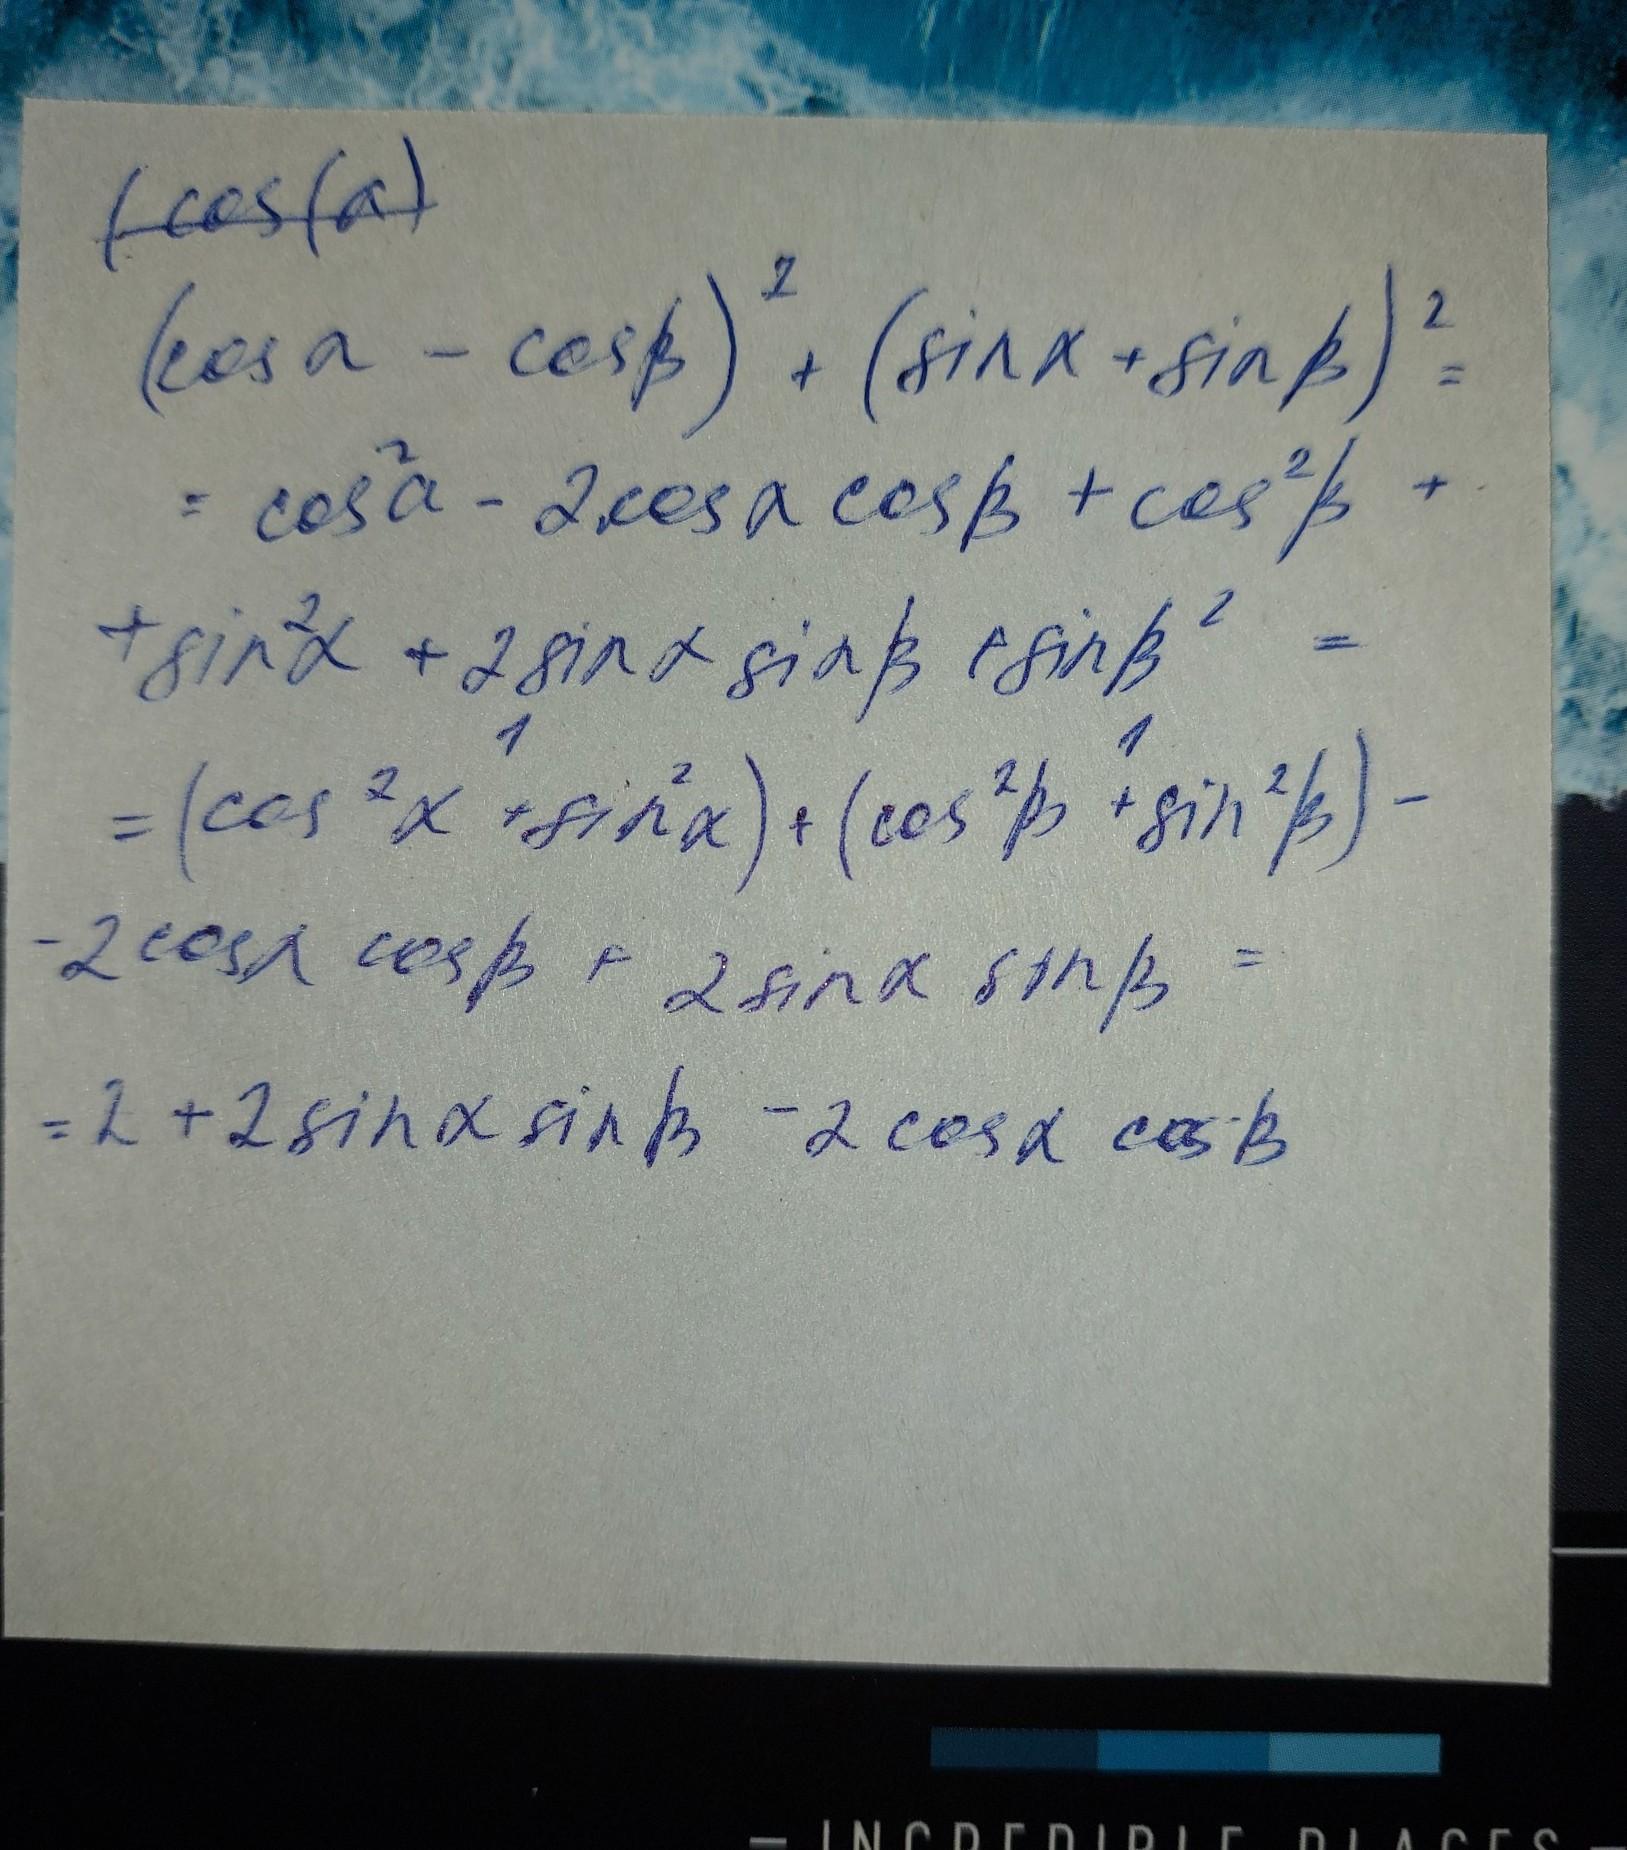 (cos(α)
(cos α - cos β)² + (sin α + sin β)² =
= cos²α - 2 cos α cos β + cos²β +
+ sin²α + 2 sin α sin β + sin β² =
1 1
= (cos²α + sin²α) + (cos²β + sin²β) -
- 2 cos α cos β + 2 sin α sin β =
= 2 + 2 sin α sin β - 2 cos α cos β
— INCREDIBLE PLACES —